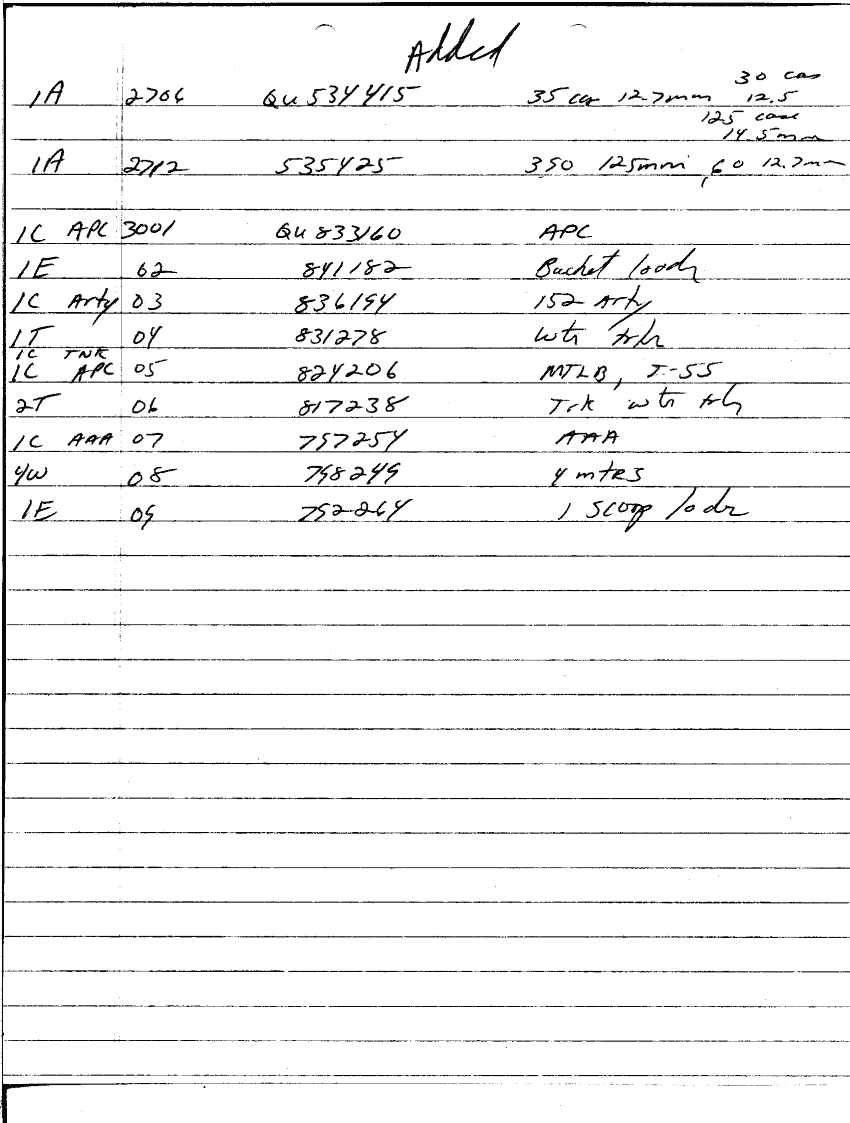 Added
30 cas
1A 2706 QU 534415 35 cas 12.7mm 12.5
125 case
14.5mm
1A 2712 535425 350 125mm, 60 12.7mm
1C APC 3001 QU 833160 APC
1E 02 841182 Bucket loadr
1C Arty 03 836194 152 Arty
1T 04 831278 wtr trlr
1C TNK
1C APC 05 824206 MTLB, T-55
2T 06 817238 Trk wtr trlr
1C AAA 07 797254 AAA
4W 08 798249 4 mtrs
1E 09 792264 1 scoop lodr